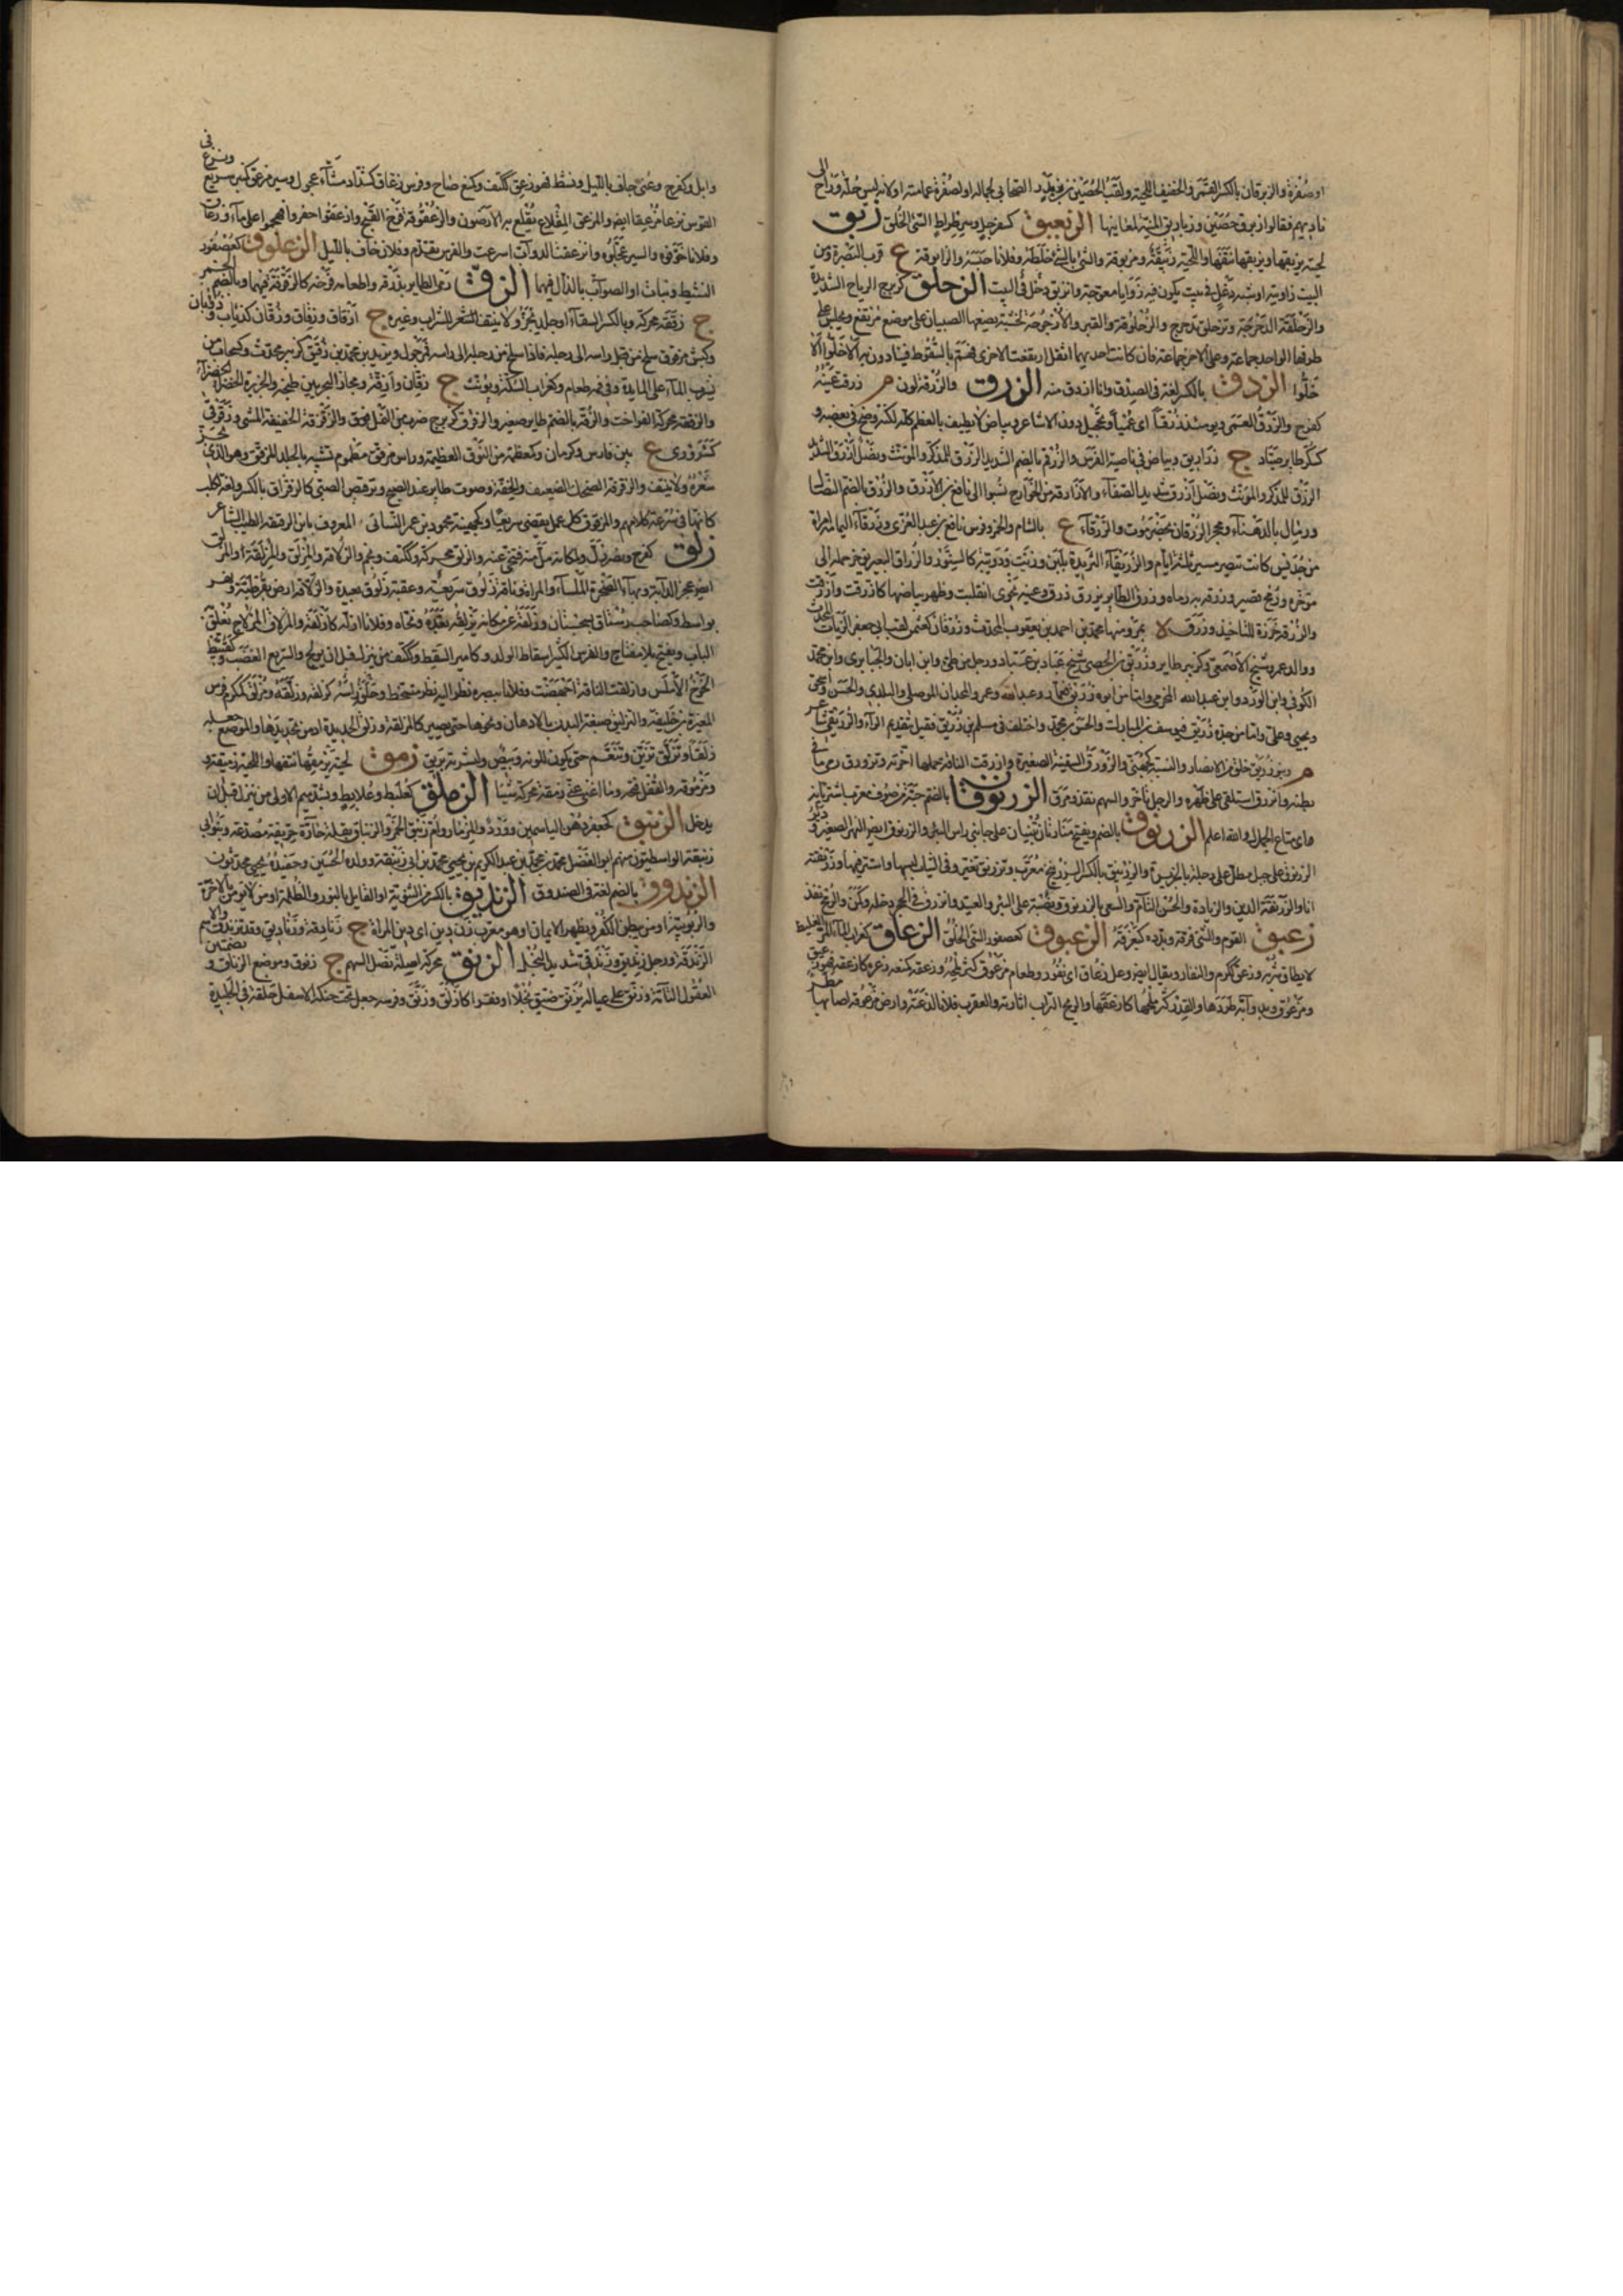 او صُفْرة والزبرقان بالكسر القمر والخفيف اللحية ولقب الحُصَيْن بن بدر الصحابى لجماله او لصُفْرة عمامته او لانه لبس حُلّة وراح الى
ناديهم فقالوا زبرق حُصَيْن وزباريق المنيّة لمعانها الزبعبق كسفرجل وسرطراط السّىّ الخُلق زبق
لحيته يزبقها ويزبقها نتفها واللحية زبيقة ومزبوقة والشئ بالشئ خلطه وفلانا حبسه والزابوقة ع قرب البصرة ومن
البيت زاويته او شبه دغل فى بيت يكون فيه زوايا معوجة وانزبق دخل فى البيت الزحلق كزبرج الرياح الشديدة
والزحلقة الدحرجة وتزحلق تدحرج والزحلوقة والقبر والارجوحة لخشبة يضعها الصبيان على موضع مرتفع ويجلس على
طرفها الواحد جماعة وعلى الآخر جماعة فان كانت احديهما اثقل ارتفعت الاخرى فتهم بالسقوط فينادون بهم الا خلّوا الا
خلّوا الزدق بالكسر لغة فى الصدق وانا ازدق منه الزرق والزرقة لون م زرقت عينه
كفرح والزرق العمى ويومئذ زرقا اى عميا وتحجيل دون الاشاعر وبياض لا يطيف بالعظم كله لكنه وضح فى بعضه و
كسكر طاير صيّاد ج زراريق وبياض فى ناصية الفرس والزرقم بالضم الشديد الزرق للمذكر والمؤنث ونصل ازرق شديد
الزرق للمذكر والمؤنث ونصل ازرق شديد الصفاء والازارقة من الخوارج نسبوا الى نافع بن الازرق والزرق بالضم النصال
ورمال بالدهناء ومحجر الزرقان بحضرموت والزرقاء ع بالشام والخمر وفرس نافع بن عبد العزى وزرقاء اليمامة امراة
من جديس كانت تبصر مسيرة ثلثة ايام والزريقاء الثريدة بلبن وزيت ودويبة كالسنّور والزراق البعير يؤخر حمله الى
مؤخره ورمح قصير وزرقه به رماه وزرق الطاير يزرق ذرق وعينه نحوى انقلبت وظهر بياضها كازرقت وازرقت
والزرقة خرزة للتأخيذ وزرق ة بمرو منها محمد بن احمد بن يعقوب المحدث وزرقان كعثمن لقب ابى جعفر الزيات المحدث
ووالد عمرو شيخ الاصمعى وكزبير طاير وزريق الحصى شيخ عباد بن عباد ورجل من طى وابن ابان والخبايرى وابن محمد
الكوفى وابن الورد وابن عبد الله المخرمى واما من ابوه زريق فعمار وعبد الله وعمرو المحدثان الموصلى والبلدى والحسن واسحق
ويحيى وعلى واما من جده زريق فيوسف بن المبارك والحسن بن محمد واختلف فى مسلم بن زريق فقيل بتقديم الراء والزريقى شاعر
م وبنو زريق خلق من الانصار والنسبة كجهنى والزورق السفينة الصغيرة وازرقت الناقة حملها اخرته وتزورق رمى ما فى
بطنه وانزرق استلقى على ظهره والرجل تأخر والسهم نفذ ومرق الزرنوقان بالضم
متاع الجمل والله اعلم الزرنوق بالضم ويفتح منارتان تبنيان على جانبى راس البئر والزرنوق ايضا النهر الصغير ودير
الزرنوق على جبل مطل على دجلة بالجزيرة والزرنيق بالكسر الزرنيخ معرب وتزرنق تغير وفى الثياب لبسها واستتر فيها وزرنقته
انا والزرنقة الدين والزيادة والحسن التام والسقى بالزرنوق ونصبه على البئر والعينة وانزرق فى الجحر دخله وكمن والرمح نفذ
زعبق القوم والشئ فرقه وبدده كبعزقه الزعبوق كعصفور السّىّ الخلق الزعاق كغراب الماء المر الغليظ
لا يطاق شربه وزعق ككرم والنفار ويقال ايضا وعل زعاق اى نفور وطعام مزعوق كثر ملحه وزعقه كمنعه ذعره كازعقه فهو زعيق
ومزعوق وبدوابه طردها والقدر كثر ملحها كازعقها والريح التراب اثارته والعقرب فلانا لدغته وارض مزعوقة اصابها مطر
وابل وكفرح وعُنى خاف بالليل ونشط فهو زعق ككتف وكمنع صاح وفرس زعاق كشداد مشّاء عجول وسير مزعق كمنبر سريع ونزع فى
القوس نزعا مزعقا ايضا والمزعق المقلاع يقلع به الارضون والزعقوقة فرخ القبج وازعقوا حفروا فهجموا على ماء زعاق
وفلانا خوّفوه والسير عجلوه وانزعقت الدواب اسرعت والفرس تقدم وفلان خاف بالليل الزعلوق كعصفور
النشيط ونبات او الصواب بالذال فيهما الزق رمى الطاير بذرقه واطعامه فرخه كالزقزقة فيهما وبالضم الخمر
ج زققة محركة وبالكسر السقاء او جلد يجز ولا ينتف للشراب وغيره ج ازقاق وزقاق وزقان كذئاب وذؤبان
وكبش مزقوق سلخ من قبل راسه الى رجله فاذا سلخ من رجله الى راسه فمرجول ويزيد بن محمد بن زقيق كزبير محدث وكسحاب من
شرب الماء على المايدة وفى فمه طعام وكغراب السكة ويؤنث ج زقان وازقة ومجاز البحر بين طنجة والجزيرة الخضراء
والزققة محركة الفواخت والزقة بالضم طاير صغير والزقزق كزبرج ضرب من النمل فوق والزقزقة الخفيفة المشى وزقوقى
كشرورى ع بين فارس وكرمان وكمعظمة من النوق العظيمة وراس مزقق مطموم تشبيه بالجلد المزقق وهو الذى يجز
شعره ولا ينتف والزقزقة الضحك الضعيف والخفة وصوت طاير عند الصبح وترقيص الصبى كالزقزاق بالكسر ولغة لكلب
كانها فى سرعة كلامهم والمزقوق كل عمل يقضى سريعا وكجهينة محمود بن عمر النسائى المعروف بابن الزقيقة الطبيب الشاعر
زلق كفرح ونصر زل وبمكانه مل منه فتنحى عنه والزلق محركة وككتف ونجم والزلاقة والمزلق والمزلقة
ايضا عجز الدابة وبهاء الصخرة الملساء والمراة وناقة زلوق سريعة وعقبة زلوق بعيدة والزلاقة ارض بقرطبة ونهر
بواسط وكصاحب رستاق بسجستان وزلقه عن مكانه يزلقه بعّده ونحاه وفلانا ازله كازلقه والمزلاق المزلاج يغلق به
الباب ويفتح بلا مفتاح والفرس الكثير اسقاط الولد وكامير السقط وككتف من ينزل قبل ان يولج والسريع الغضب وكقبيط
الخوخ الاملس وازلقت الناقة اجهضت وفلانا ببصره نظر اليه نظر متسخط وحلق راسه كزلقه وزلقه ومزلق ككرم فرس
المغيرة بن خليفة والتزليق صبغة البدن بالادهان ونحوها حتى يصير كالمزلقة وزلق الحديدة ادمن تحديدها والموضع جعله
زلقا وتزلق تزين وتنعم حتى يكون للونه وبيص ولبشرته بريق زمق لحيته يزمقها نتفها واللحية زميقة و
ومزموقة والقفل فتحه وما اغنى عنى زمقة محركة شيئا الزملق كعلبط وعلابط وتشدد ميم الاولى من ينزل قبل ان
يدخل الزنبق كجعفر دهن الياسمين وورد والمزمار وام زنبق الخمر والزنباق بقلة حارة حريفة مصدعة وبنو ابى
زنبقة الواسطيون منهم ابو الفضل محمد بن محمد بن عبد الكريم بن يحيى بن محمد بن ابى زنبقة وولده الحسين وحفيده يحيى محدثون
الزندوق بالضم لغة فى الصندوق الزنديق بالكسر من الثنوية او القايل بالنور والظلمة او من لا يؤمن بالاخرة
والربوبية او من يبطن الكفر ويظهر الايمان او هو معرب زن دين اى دين المراة ج زنادقة وزناديق وقد تزندق والاسم
الزندقة ورجل زنديق وزندقى شديد البخل الزنق محركة اصلة نصل السهم ج زنوق وموضع الزناق و بضمتين
العقول التامة وزنق على عياله يزنق ضيق بخلا او فقرا كازنق وزنّق وفرسه جعل تحت حنكه الاسفل حلقة فى الجليدة